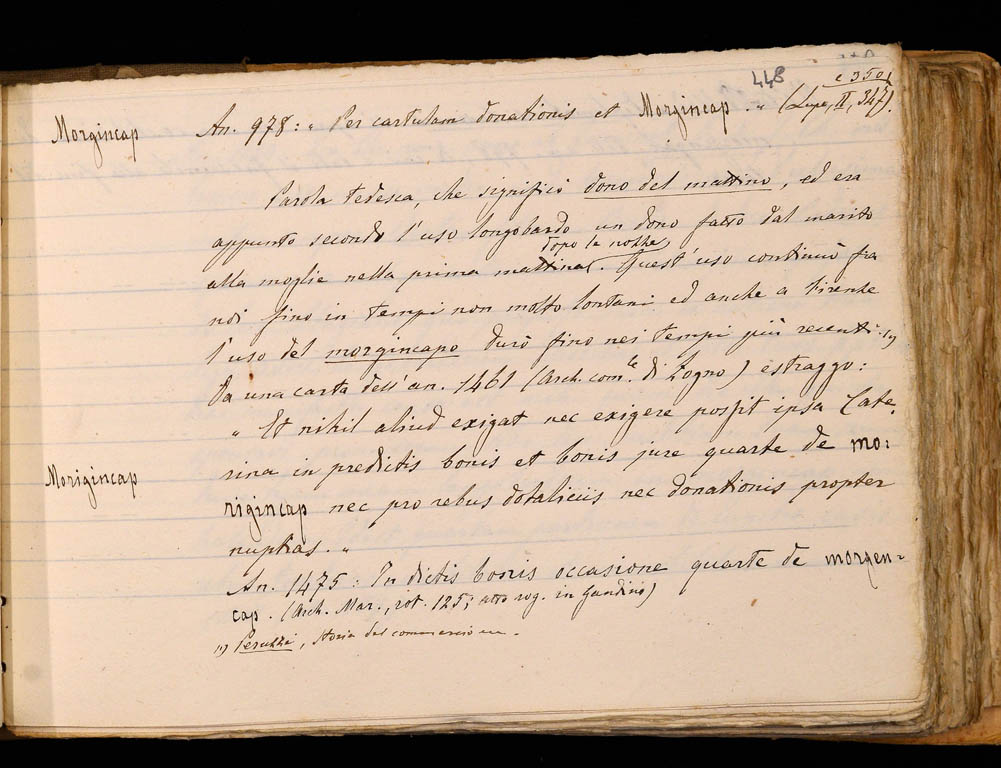 448
c 350,
Morgincap An. 978: „ Per cartulam donationis et Morgincap . „ (Lupo, II, 347).
Parola tedesca, che significò dono del mattino, ed era
appunto secondo l'uso longobardo un dono fatto dal marito
dopo le nozze
alla moglie nella prima mattina. Quest'uso continuò fra
noi fino in tempi non molto lontani ed anche a Firenze
l'uso del morgincapo durò fino nei tempi più recenti. 1)
Da una carta dell'an. 1461 (Arch. com.le di Zogno) estraggo:
„ Et nihil aliud exigat nec exigere possit ipsa Cate-
rina in predictis bonis et bonis jure quarte de mo:
Morigincap rigincap nec pro rebus dotaliciis nec donationis propter
nuptias. „
An. 1475: In dictis bonis occasione quarte de morgen-
cap. (Arch. Mar., rot. 125; atto rog. in Gandino)
1) Peruzzi, Storia del commercio